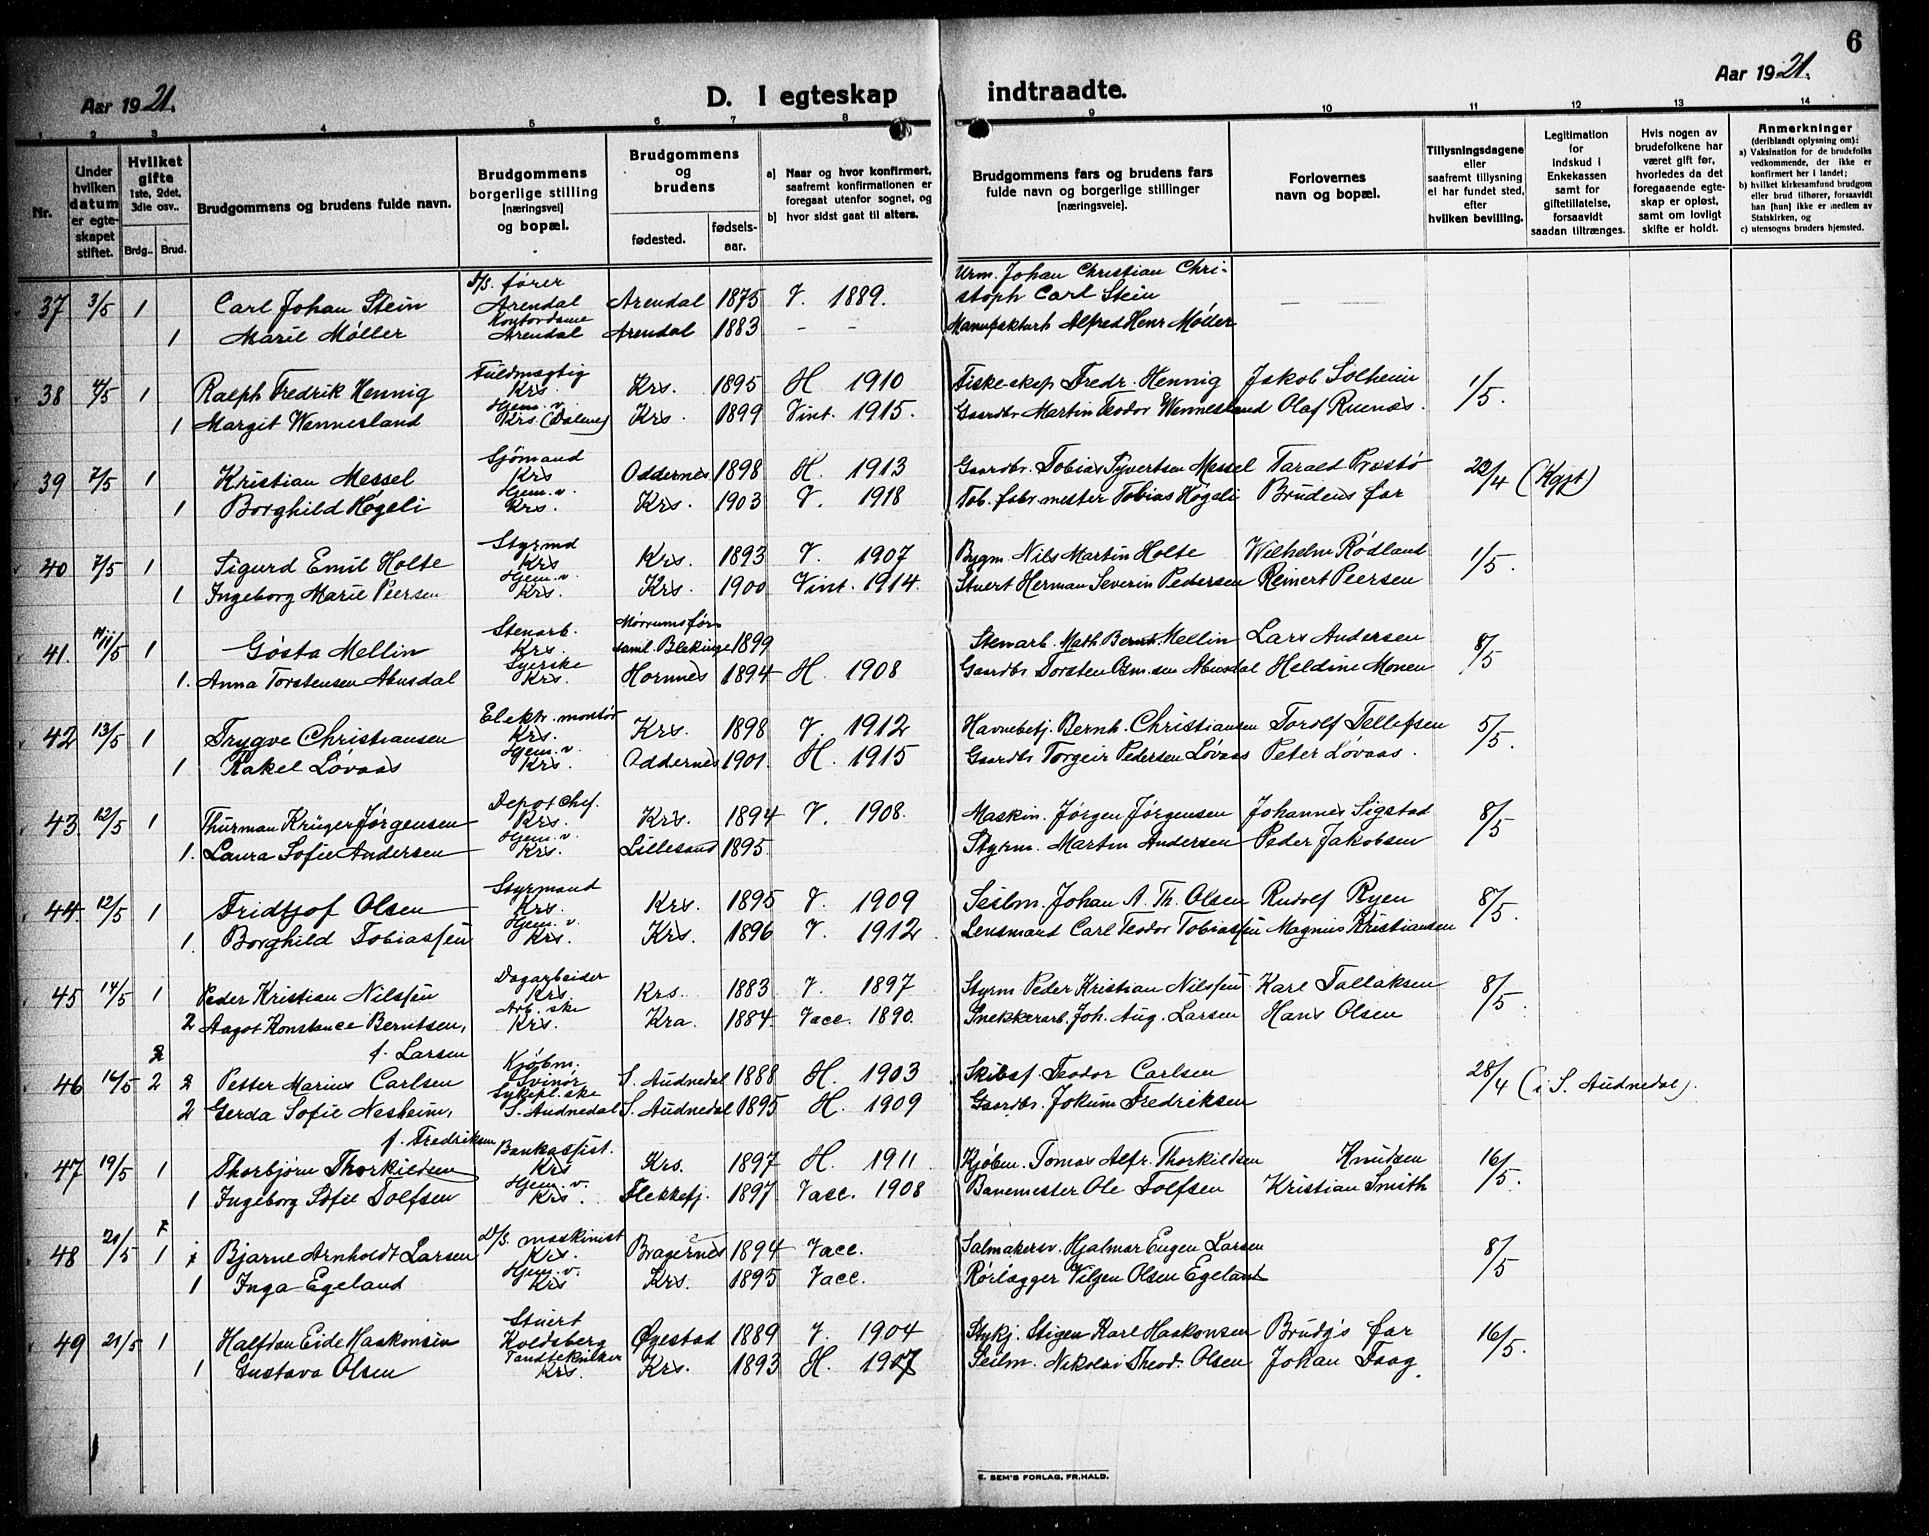 6
Aar 1921.
D. I egteskap indtraadte.
Aar 1921.
1 2 3 4 5 6 7 8 9 10 11 12 13 14
Nr.
Under hvilken datum er egteskapet stiftet.
Hvilket gifte 1ste, 2det, 3die osv..
Brdg.. Brud.
Brudgommens og brudens fulde navn.
Brudgommens borgerlige stilling [næringsvei] og bopæl.
Brudgommens og brudens
fødested.
fødselsaar.
a) Naar og hvor konfirmert, saafremt konfirmationen er foregaat utenfor sognet, og
b) hvor sidst gaat til alters.
Brudgommens fars og brudens fars fulde navn og borgerlige stillinger [næringsveie].
Forlovernes navn og bopæl.
Tillysningsdagene eller saafremt tillysning ei har fundet sted, efter hvilken bevilling.
Legitimation for indskud i Enkekassen samt for giftetillatelse, forsaavidt saadan tiltrænges.
Hvis nogen av brudefolkene har været gift før, hvorledes da det foregaaende egteskap er opløst, samt om lovligt skifte er holdt.
Anmerkninger (deriblandt oplysning om):
a) Vaksination for de brudefolks vedkommende, der ikke er konfirmert her i landet;
b) hvilket kirkesamfund brudgom eller brud tilhører, forsaavidt han [hun] ikke er medlem av Statskirken, og
c) utensogns bruders hjemsted.
37 3/5 1 Carl Johan Stein D/S. fører Arendal Arendal 1875 V. 1889. Urm. Johan Christian Christoph Carl Stein — —
1 Marie Møller Kontordame Arendal Arendal 1883 – – Manufakturh Alfred Henr Møller
38 4/5 1 Ralph Fredrik Hennig Fuldmægtig Krs. Krs. 1895 H 1910 Fiskeskep Fredr. Hennig Jakob Solheim 1/5.
1 Margit Wennesland Hjem. v. Krs. (Dalene) Krs 1899 Vint. 1915. Gaardbr. Martin Teodor Wennesland Olaf Ruenæs.
39 7/5 1 Kristian Messel Sjømand Krs Oddernes 1898 H. 1913 Gaardbr. Tobias Syvertsen Messel Tarald Prestø 23/4 (Kgpt)
1 Borghild Høgeli Hjem. v. Krs. Krs. 1903 V. 1918 Tob. fabr. mester Tobias Høgeli Brudens far
40 7/5 1 Sigurd Emil Holte Styrmd Krs Krs. 1893 V. 1907 Bygm Nils Martin Holte Wilhelm Rødland 1/5.
1 Ingeborg Marie Peersen Hjem. v. Krs. Krs. 1900 Vint. 1914. Stuert Herman Severin Pedersen Reinert Peersen
41. 11/5 1 Gøsta Mellin Stenarb. Krs. Mörrums församl. Blekinge 1899 Stenarb. Math. Bernt. Mellin Lars Andersen 8/5
1. Anna Torstensen Abusdal Syerske Krs. Hornnes 1894 H. 1908 Gaardbr Torsten Osm.sen Abusdal Heldine Monen
42 13/5 1 Trygve Christiansen Elektr. montør Krs. Krs. 1898 V. 1912 Havnebetj. Bernh. Christiansen Torolf Tellefsen 5/5.
1 Rakel Løvaas Hjem. v. Krs. Oddernes 1901. H. 1915 Gaardbr Torgeir Pedersen Løvaas Peter Løvaas.
43. 12/5 1 Thurman Krüger Jørgensen Depotchef. Krs. Krs. 1894 V. 1908. Maskin. Jørgen Jørgensen Johannes Sigstad 8/5
1. Laura Sofie Andersen Hjem. v. Krs. Lillesand 1895. Styrm. Martin Andersen Peder Jakobsen
44. 12/5 1 Fridtjof Olsen Styrmand Krs. Krs. 1895 V. 1909 Seilm. Johan A. Th. Olsen Rudolf Ryen 8/5.
1. Borghild Tobiassen Hjem. v. Krs. Krs. 1896 V. 1912 Lensmand Carl Teodor Tobiassen Magnus Kristiansen
45 14/5 1 Peder Kristian Nilssen Dagarbeider Krs. Krs. 1883 V. 1897 Styrm Peder Kristian Nilssen Karl Tallaksen 8/5.
2 Aagot Konstance Berntsen, f. Larsen Arb. ske Krs. Kra. 1884. Vacc. 1890. Snekkerarb. Joh. Aug. Larsen Hans Olsen
46 16/5 2 2 Petter Marius Carlsen Kjøbm. Svinør S. Audnedal 1888 H. 1903 Skibsf Teodor Carlsen 28/4 (i S. Audnedal).
2 Gerda Sofie Nesheim, f. Fredriksen Sykepl.ske S. Audnedal S. Audnedal 1895 H. 1909 Gaardbr. Jokum Fredriksen
47 19/5 1 Thorbjørn Thorkildsen Bankassist. Krs Krs. 1897 H. 1911 Kjøbm. Tomas Alfr. Thorkildsen Knudsen 16/5.
1 Ingeborg Sofie Tolfsen Hjem. v. Krs. Flekkefj. 1897 Vacc. 1908 Banemester Ole Tolfsen Kristian Smith
48 21/5 1 1 Bjarne Arnholdt Larsen D/S. maskinist Krs. Bragernes 1894 Vacc. Salmakersv. Hjalmar Eugen Larsen 8/5
1 Inga Egeland Hjem. v. Krs Krs. 1895 Vacc. Rørlægger Viljen Olsen Egeland
49 21/5 1 Halfdan Eide Haakonsen Stuert Koldsberg Øyestad 1889 V. 1904 Stykj. Stigen Karl Haakonsen Brudg's far 16/5.
1 Gustava Olsen Tandtekniker Krs. Krs. 1893 H. 1907 Seilm. Nikolai Theod. Olsen Johan Faag.
E. SEM'S FORLAG, FR.HALD.